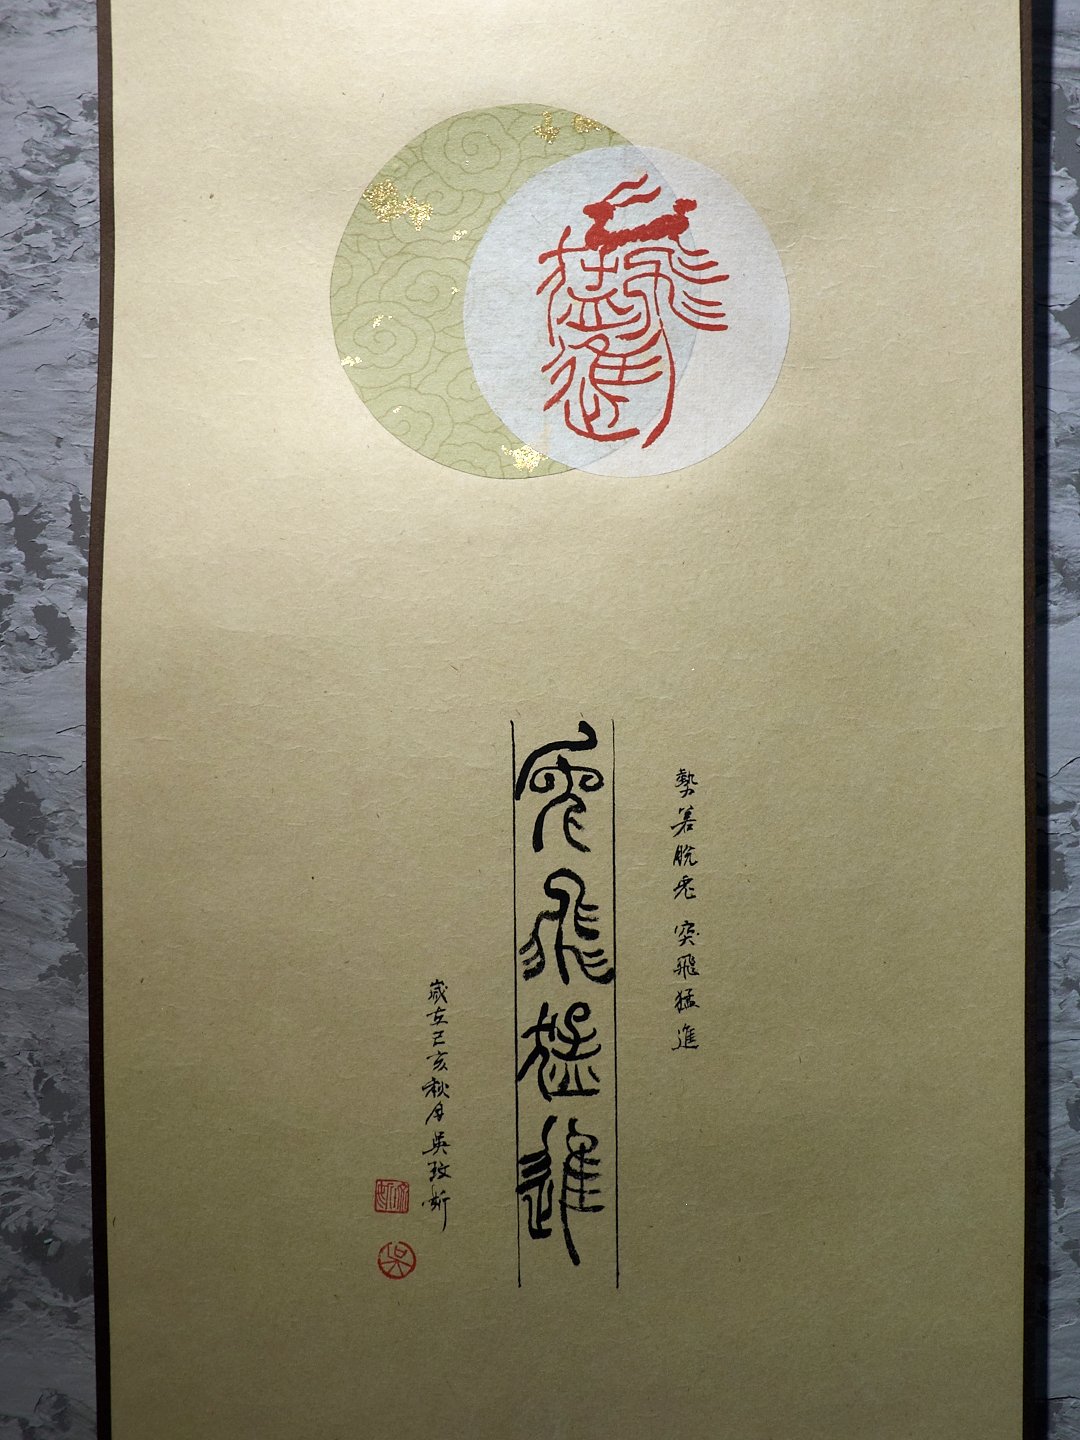 飛猛進
勢若脫兔 突飛猛進
突飛猛進
歲在己亥秋月吳玟昕
吳